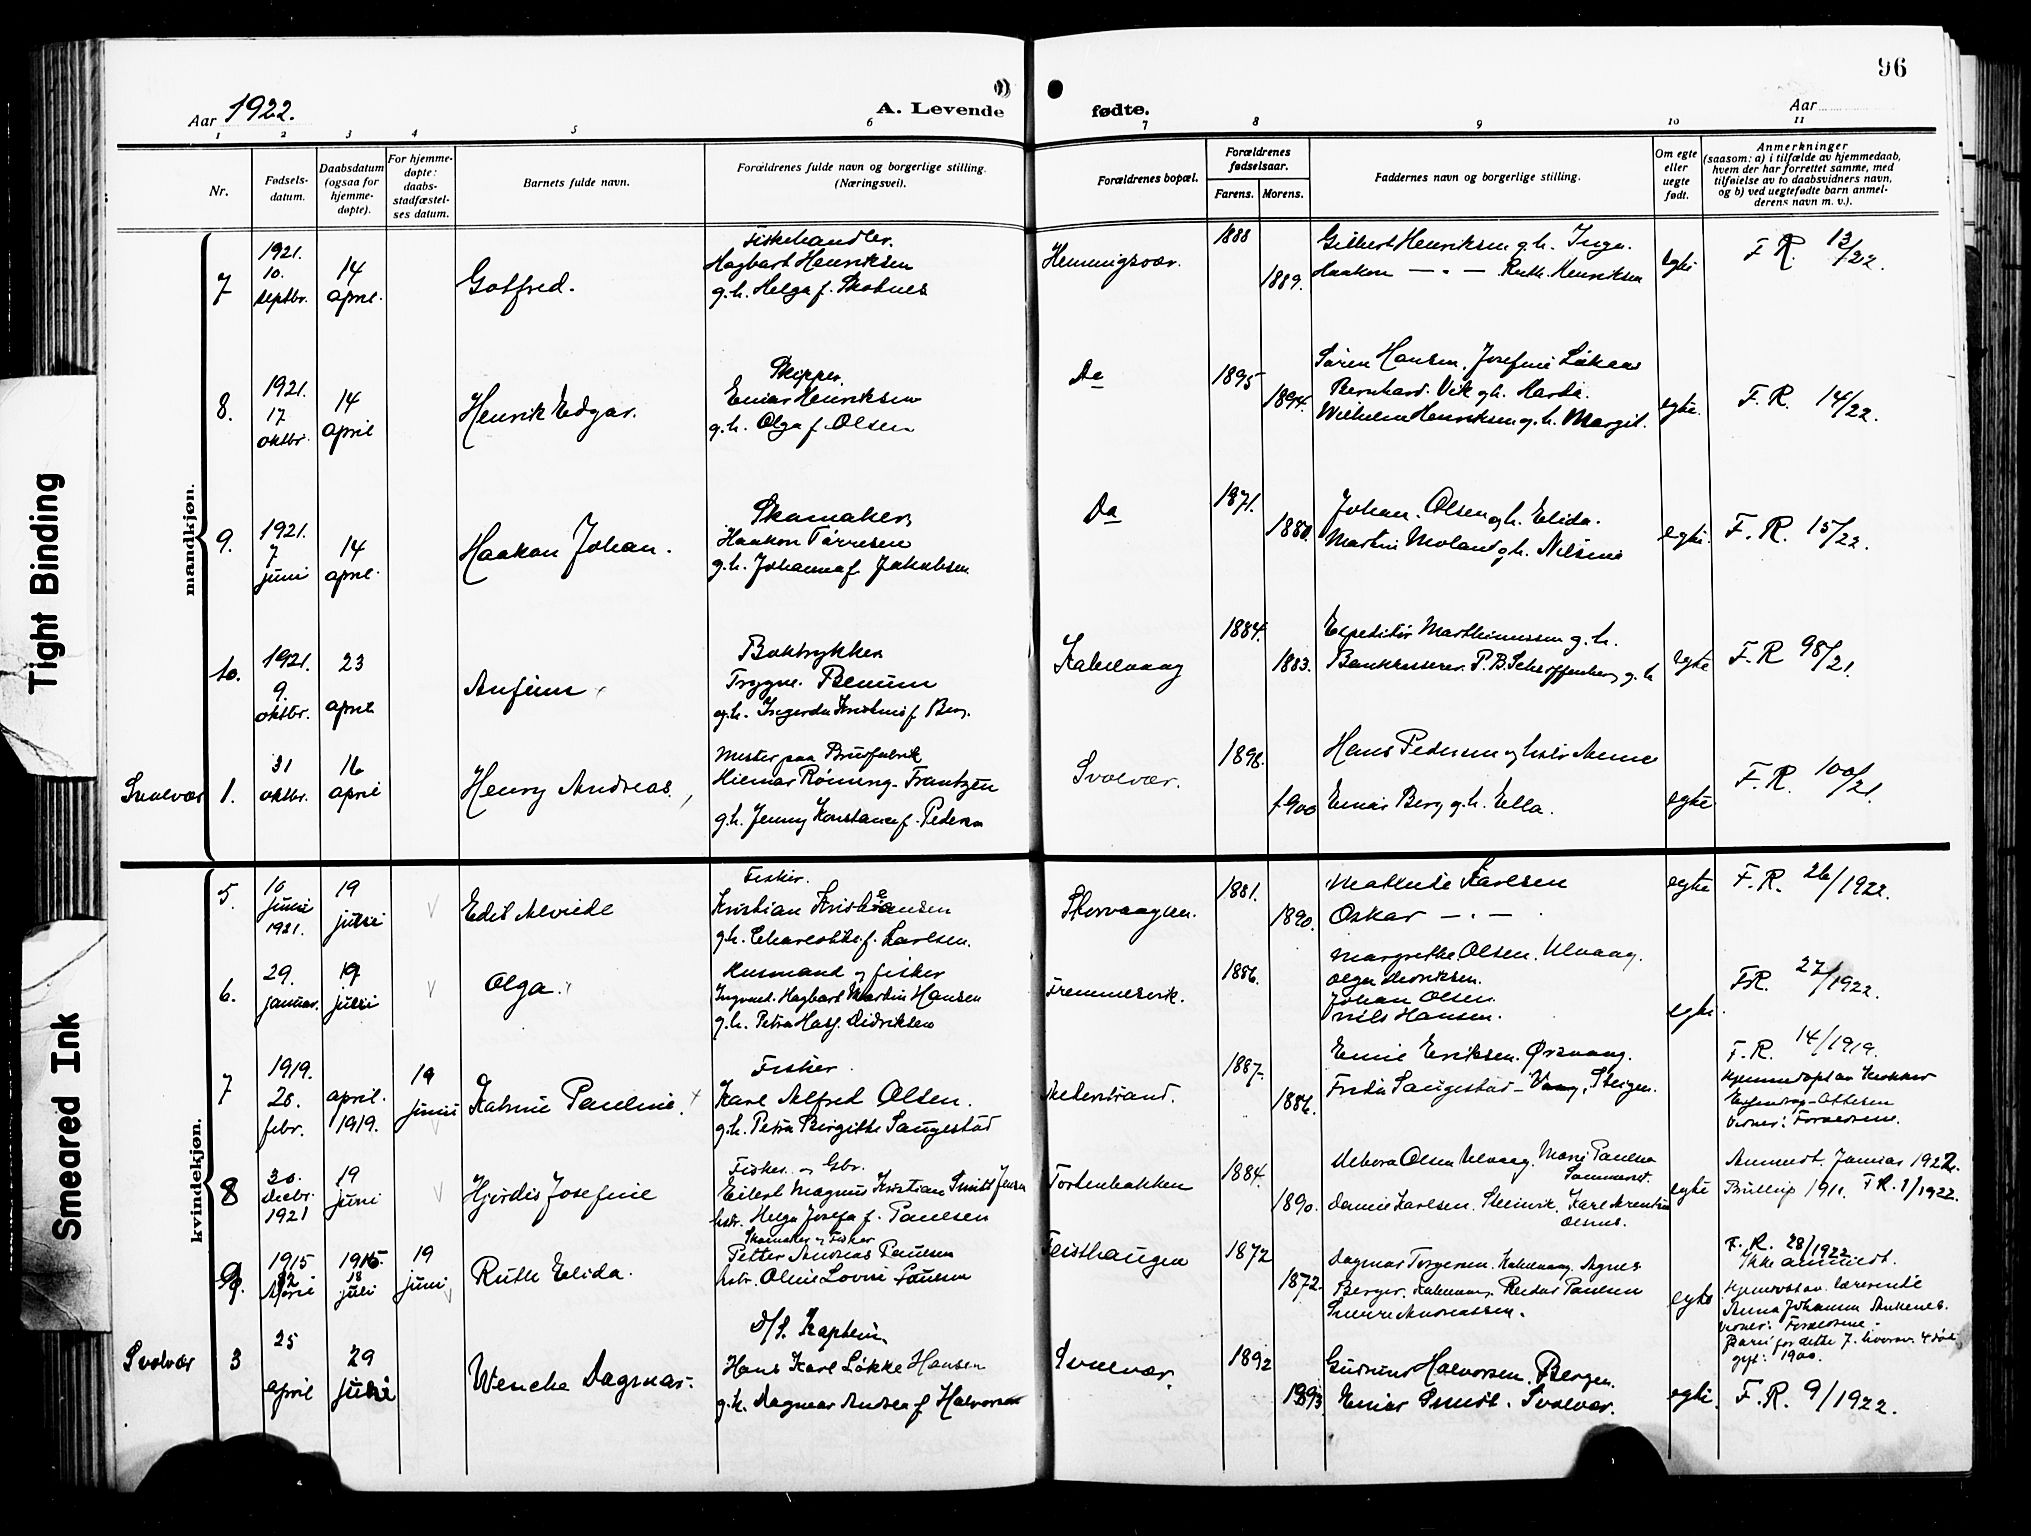 96
Aar 1922.
A. Levende fødte.
Aar
1 2 3 4 5 6 7 8 9 10 11
Nr.
Fødsels-
datum.
Daabsdatum
(ogsaa for
hjemme-
døpte).
For hjemme-
døpte:
daabs-
stadfæstel-
ses datum.
Barnets fulde navn.
Forældrenes fulde navn og borgerlige stilling.
(Næringsvei).
Forældrenes bopæl.
Forældrenes
fødselsaar.
Farens. Morens.
Faddernes navn og borgerlige stilling.
Om egte
eller
uegte
født.
Anmerkninger
(saasom: a) i tilfælde av hjemmedaab,
hvem der har forrettet samme, med
tilføielse av to daabsvidners navn,
og b) ved uegtefødte barn anmel-
derens navn m. v.).
mandkjøn.
7
1921.
10.
septbr.
14
april.
Gotfred.
Fiskehandler.
Hagbart Henriksen
g.h. Helga f. Skotnes
Henningsvær.
1888
1889.
Gilbert Henriksen g.h. Inga.
Haakon — " — Ruth Henriksen
egte
F R. 13/22.
8.
1921.
17
oktbr.
14
april
Henrik Edgar.
Skipper.
Einar Henriksen
g.h. Olga f. Olsen
Do
1895
1894.
Søren Hansen, Josefine
Bernhard Vik g.h.
Wilhelm Henriksen g.h. Margit.
egte.
F. R. 14/22.
9.
1921.
7
juni
14
april.
Haakon Johan.
Skomaker
Haakon Tørresen
g.h. Johanna f. Jakobsen
Do
1871.
1880.
Johan Olsen g.h. Elida.
Martin Moland g.h.
egte.
F. R. 15/22.
10.
1921.
9.
oktbr.
23
april
Anfinn
Boktrykker
Trygve Benum
g.h. Ingerda f. Berg.
Kabelvaag
1884.
1883.
Expeditør Marthinussen g.h.
Bankkasserer P.B. g.h
egte
F. R 98/21.
Svolvær 1.
31
oktbr.
16
april
Henry Andreas
Mester paa Brusfabrik
Hilmar Rønning-Frantzen
g.h. Jenny Konstance f. Pedersen
Svolvær.
1898.
1900
Hans Pedersen og hstr Anne
Einar Berg g.h. Ella.
egte
F. R. 100/21.
kvindekjøn.
5.
10
juni
1921.
19
juni
Edit Alvide
Fisker.
Kristian Kristiansen
g.h. Charlotte f. Karlsen.
Storvaagen.
1881.
1890.
Mathilde Karlsen
Oskar — " —
egte
F. R. 26/1922.
6.
29.
januar.
19
juni
Olga.
Husmand og fisker
Ingvald Hagbart Martin Hansen
g.h. Petra f. Didriksen
1886.
Margrethe Olsen. Ulvaag.
Olga
Johan Olsen.
Nils Hansen.
egte.
FR. 27/1922.
7
1919.
28.
febr.
april.
1919.
19
juni
Katrine Pauline.
Fisker
Karl Alfred Olsen.
g.h. Petra Birgitte Saugestad
1887.
1886.
Emil Eriksen. Ørsvaag.
Frida Saugestad - Vaag, Steigen.
F. R. 14/1919.
Hjemmedøpt av
Vidner: Forældrene.
8
30.
decbr.
1921
19
juni
Hjørdis Josefine
Fisker og Gbr.
Eilert Magnus Kristian Smitt Jensen
hstr. Helga Josefa f. Paulsen
Tortenbakken
1884.
1890.
Debora Olsen Ulvaag. Marie Paulsen
Danie Karlsen. Steinvik.
egte
Anmeldt. Januar 1922.
Bryllup 1911. FR. 1/1922.
9.
1915
1915
18
juli
19
juni
Ruth Elida.
Skomaker og Fisker
Petter Andreas Paulsen
hstr. Oline Lovise Paulsen
Feisthaugen
1872
1872.
Dagmar Torgersen. Kabelvaag. Agnes
Berger. Kabelvaag. Reidar Paulsen
Sverre Andreassen.
egte
F. R. 28/1922
Ikke anmeldt.
Hjemmedøpt av lærerinde
Anna Johanna
Vidner: Forældrene.
Barn før dette 7. hvorav 4 død.
gift: 1900.
Svolvær 3
25
april
29
juni
Wencke Dagmar.
D/S. Kaptein
Hans Karl Løkke Hansen
g.h. Dagmar Andrea f Halvorsen
Svolvær.
1892
1893.
Gudrun Halvorsen. Bergen.
Einar Smidt. Svolvær.
egte.
F. R. 9/1922.
Tight Binding
Smeared Ink